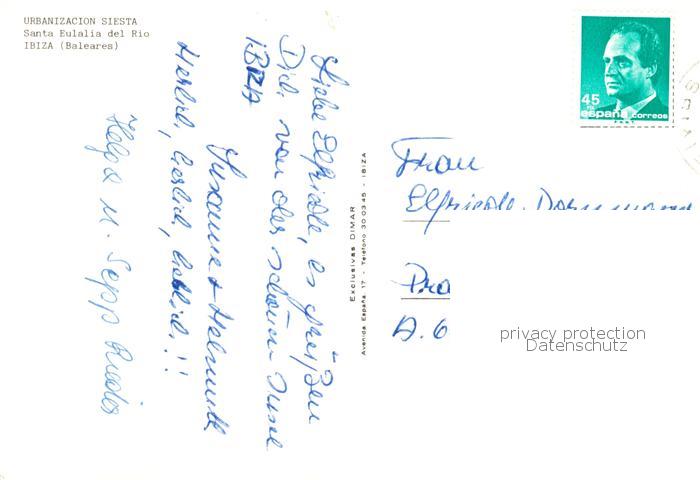 URBANIZACION SIESTA
Santa Eulalia del Rio
IBIZA (Baleares)
Liebe Elfriede, es grüßen
Dich von der schönen Insel
IBIZA
Susanne + Helmuth
Herbird, herbird, herbird!!
Helga u. Sepp
Exclusivas DIMAR
Avenida España, 17 - Teléfono 30 03 45 - IBIZA
45
PTA
españa correos
Frau
Elfriede
Pra
A. 6
privacy protection
Datenschutz